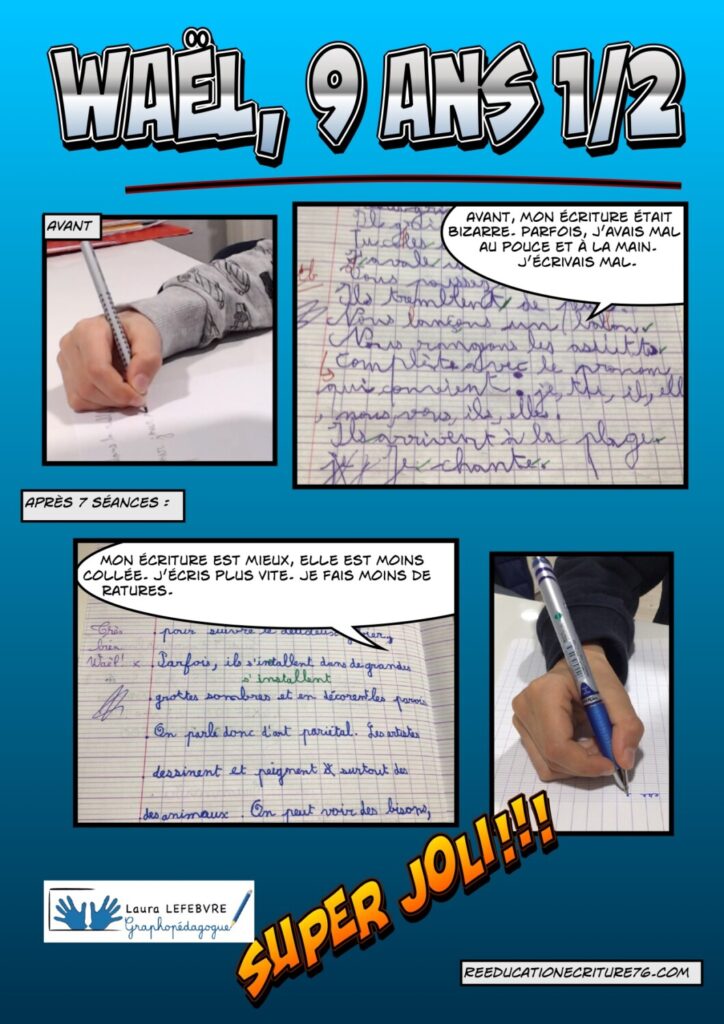 WAËL, 9 ANS 1/2
AVANT
AVANT, MON ÉCRITURE ÉTAIT
BIZARRE. PARFOIS, J'AVAIS MAL
AU POUCE ET À LA MAIN.
J'ÉCRIVAIS MAL.
Ils tremblent de
Nous lançons un ballon.
Nous rangons les
Complète avec le pronom
qui convient : je, tu, il, elle
, nous, vous, ils, elles.
Ils arrivent à la plage.
je chante.
APRÈS 7 SÉANCES :
MON ÉCRITURE EST MIEUX, ELLE EST MOINS
COLLÉE. J'ÉCRIS PLUS VITE. JE FAIS MOINS DE
RATURES.
Très
bien
Waël !
pour suivre le
Parfois, ils s'installent dans de grandes
s'installent
grottes sombres et en décorent les parois
On parle donc d'art pariétal. Les artistes
dessinent et peignent surtout des
des animaux. On peut voir des bisons,
SUPER JOLI!!!
Laura LEFEBVRE
Graphopédagogue
REEDUCATIONECRITURE76.COM